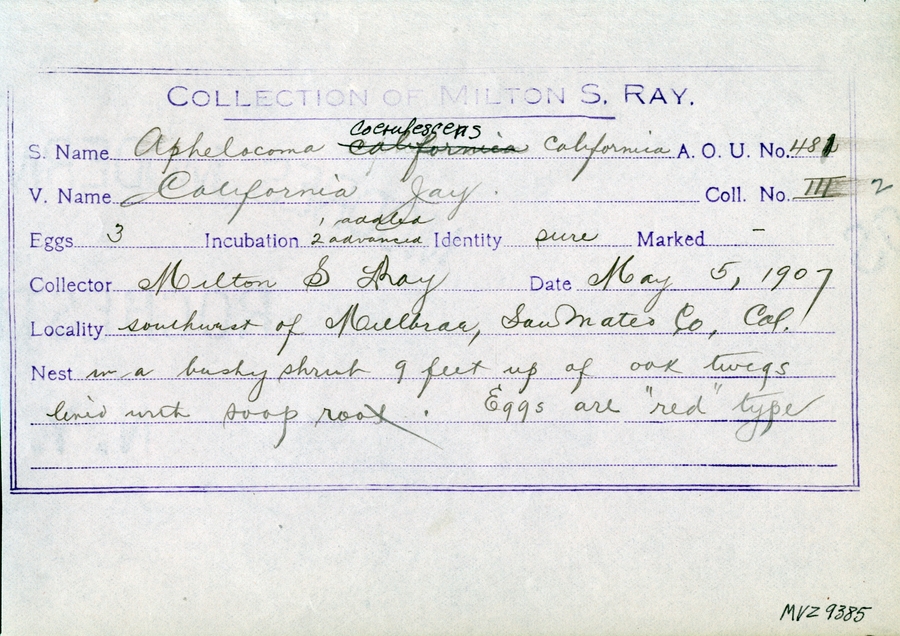 COLLECTION OF MILTON S. RAY.
coerulescens
S. Name Aphelocoma californica californica A. O. U. No. 481
V. Name California Jay. Coll. No. III 2
1 addled
Eggs 3 Incubation 2 advanced Identity sure Marked –
Collector Milton S Ray Date May 5, 1907
Locality southwest of Millbrae, San Mateo Co, Cal.
Nest in a bushy shrub 9 feet up of oak twigs
lined with soap root. Eggs are "red" type
MVZ 9385